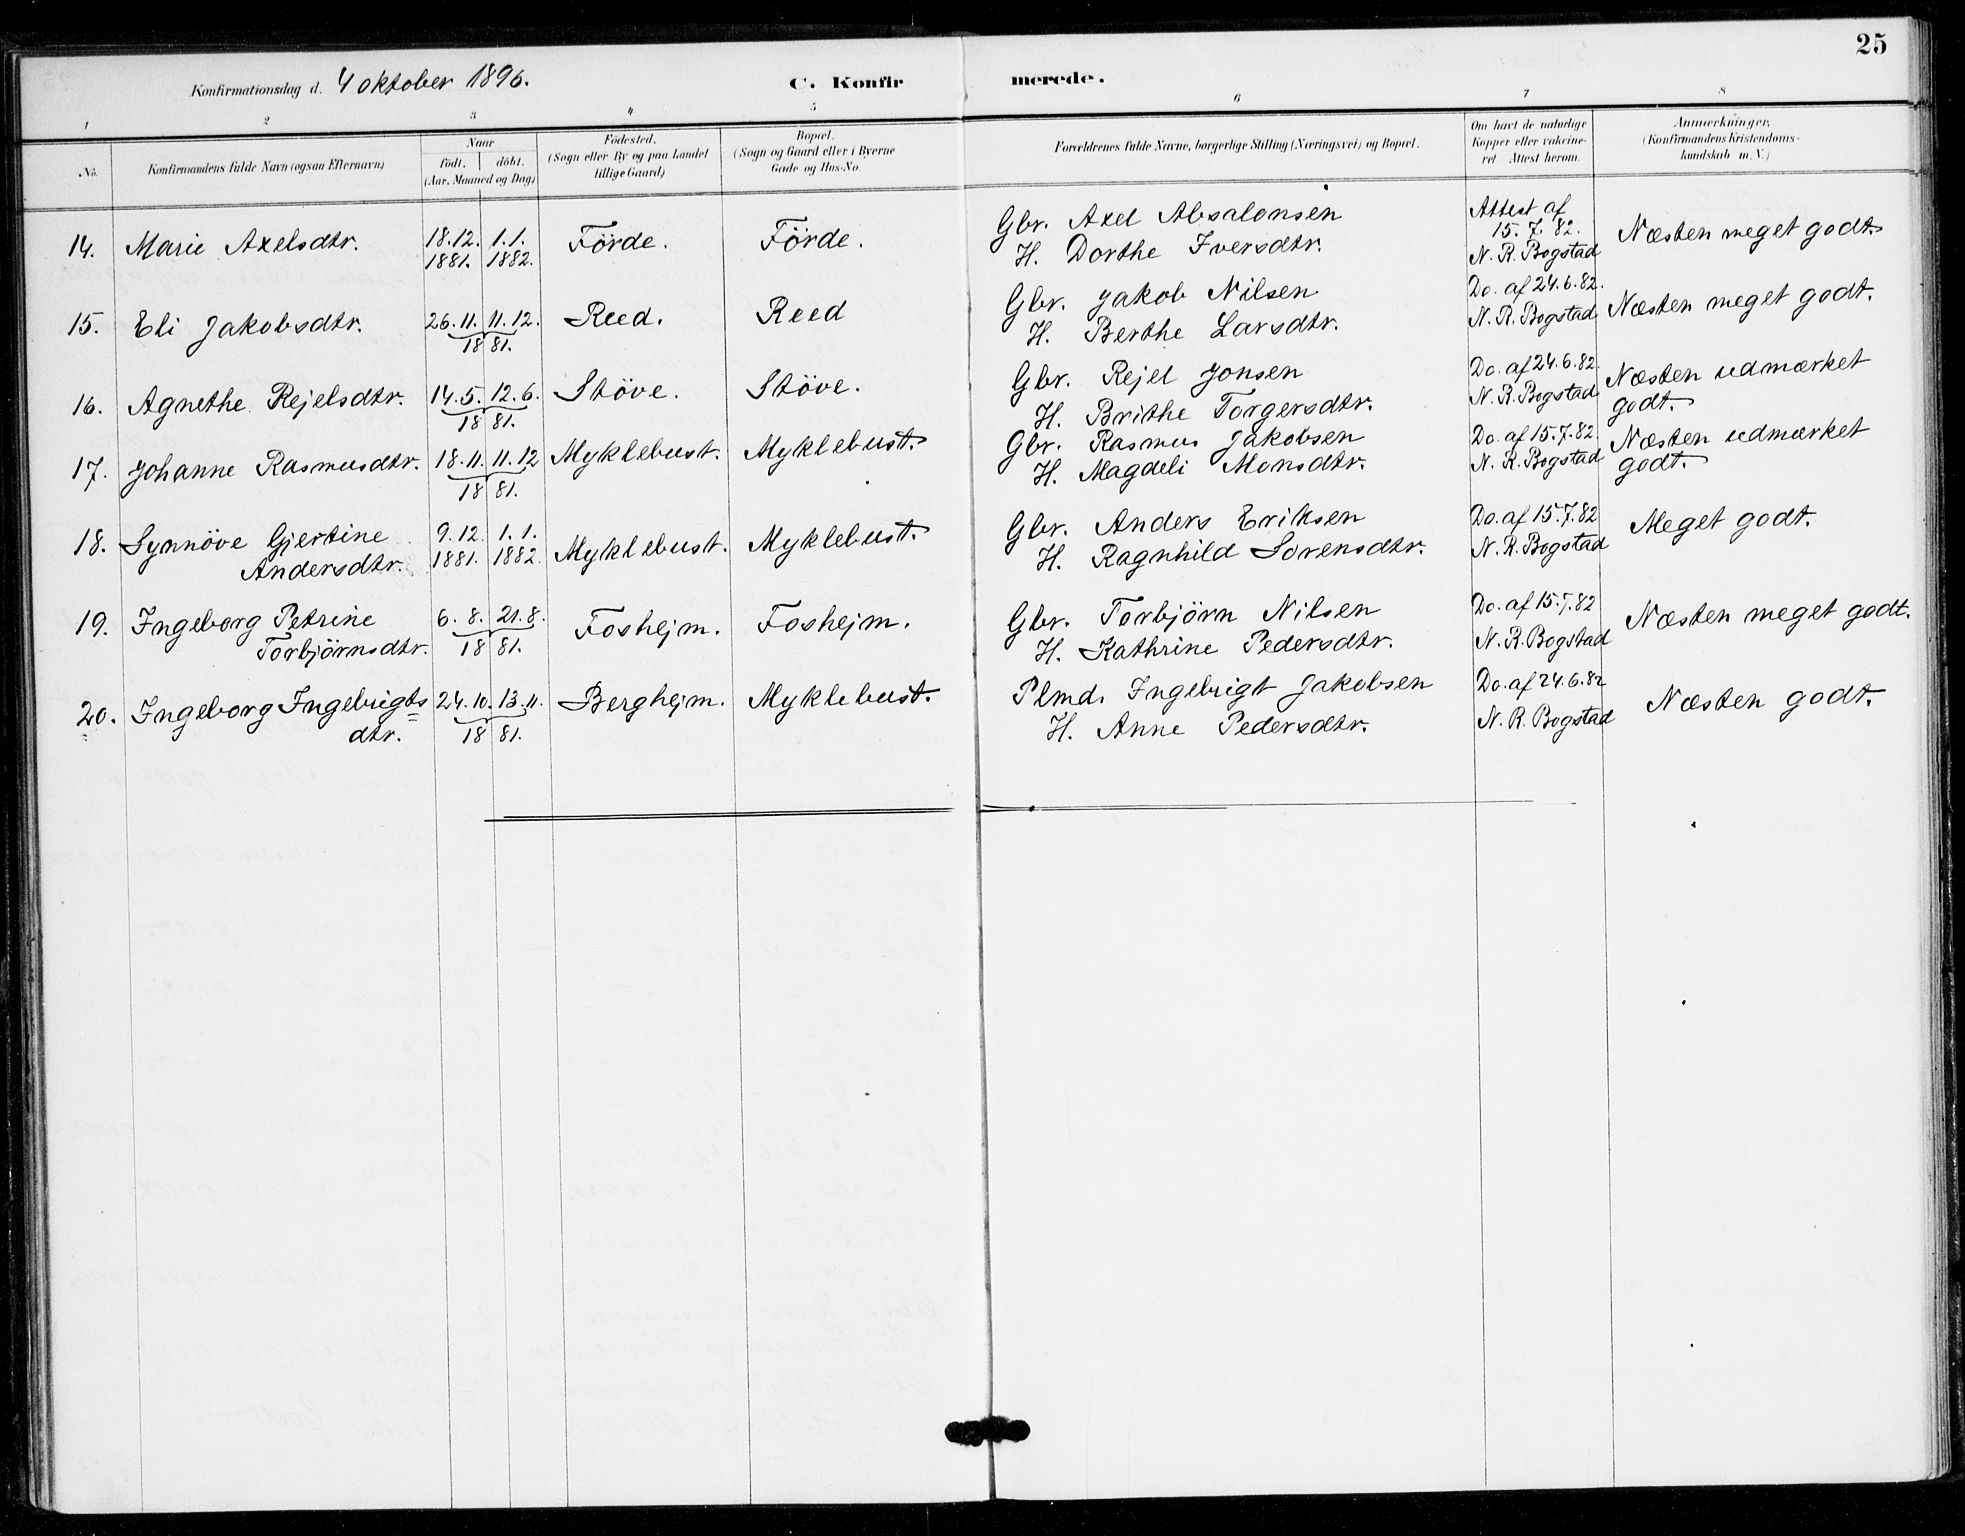 25
Konfirmationsdag d. 4 oktober 1896. C. Konfir merede.
1 2 3 4 5 6 7 8
No. Konfirmandens fulde Navn (ogsaa Efternavn) Naar født. døbt. (Aar, Maaned og Dag) Fødested. (Sogn eller By og paa Landet tillige Gaard) Bopæl. (Sogn og Gaard eller i Byerne Gade og Hus-No. Forældrenes fulde Navne, borgerlige Stilling (Næringsvei) og Bopæl. Om havt de naturlige Kopper eller vakcineret. Attest herom. Anmærkninger. (Konfirmandens Kristendoms-kundskab m. V.)
14. Marie Axelsdtr. 18.12. 1881. 1.1. 1882. Förde. Förde. Gbr. Axel Absalonsen Attest af 15.7.82. Næsten meget godt.
H. Dorthe Iversdtr. N. R. Bogstad
15. Eli Jakobsdtr. 26.11. 11.12. 1881. Reed. Reed Gbr. Jakob Nilsen Do. af 24.6.82. Næsten meget godt.
H. Berthe Larsdtr. N. R. Bogstad
16. Agnethe Rejelsdtr. 14.5. 12.6. 1881. Stöve. Stöve. Gbr. Rejel Jonsen Do. af 24.6.82. Næsten udmærket
H. Brithe Torgersdtr. N. R. Bogstad godt.
17. Johanne Rasmusdtr. 18.11. 11.12 1881. Myklebust. Myklebust. Gbr. Rasmus Jakobsen Do. af 15.7.82. Næsten udmærket
H. Magdeli Monsdtr. N. R. Bogstad godt.
18. Synnöve Gjertine 9.12. 1881. 1.1. 1882. Myklebust. Myklebust. Gbr. Anders Eriksen Do. af 15.7.82 Meget godt.
Andersdtr. H. Ragnhild Sorensdtr. N. R. Bogstad
19. Ingeborg Petrine 6.8. 21.8. 1881. Foshejm. Foshejm. Gbr. Torbjörn Nilsen Do. af 15.7.82 Næsten meget godt.
Torbjörnsdtr. H. Kathrine Pedersdtr. N. R. Bogstad
20. Ingeborg Ingebrigts= 24.10. 13.11. 1881. Berghejm. Myklebust. Plmd. Ingebrigt Jakobsen Do. af 24.6.82 Næsten godt.
dtr. H. Anne Pedersdtr. N. R. Bogstad